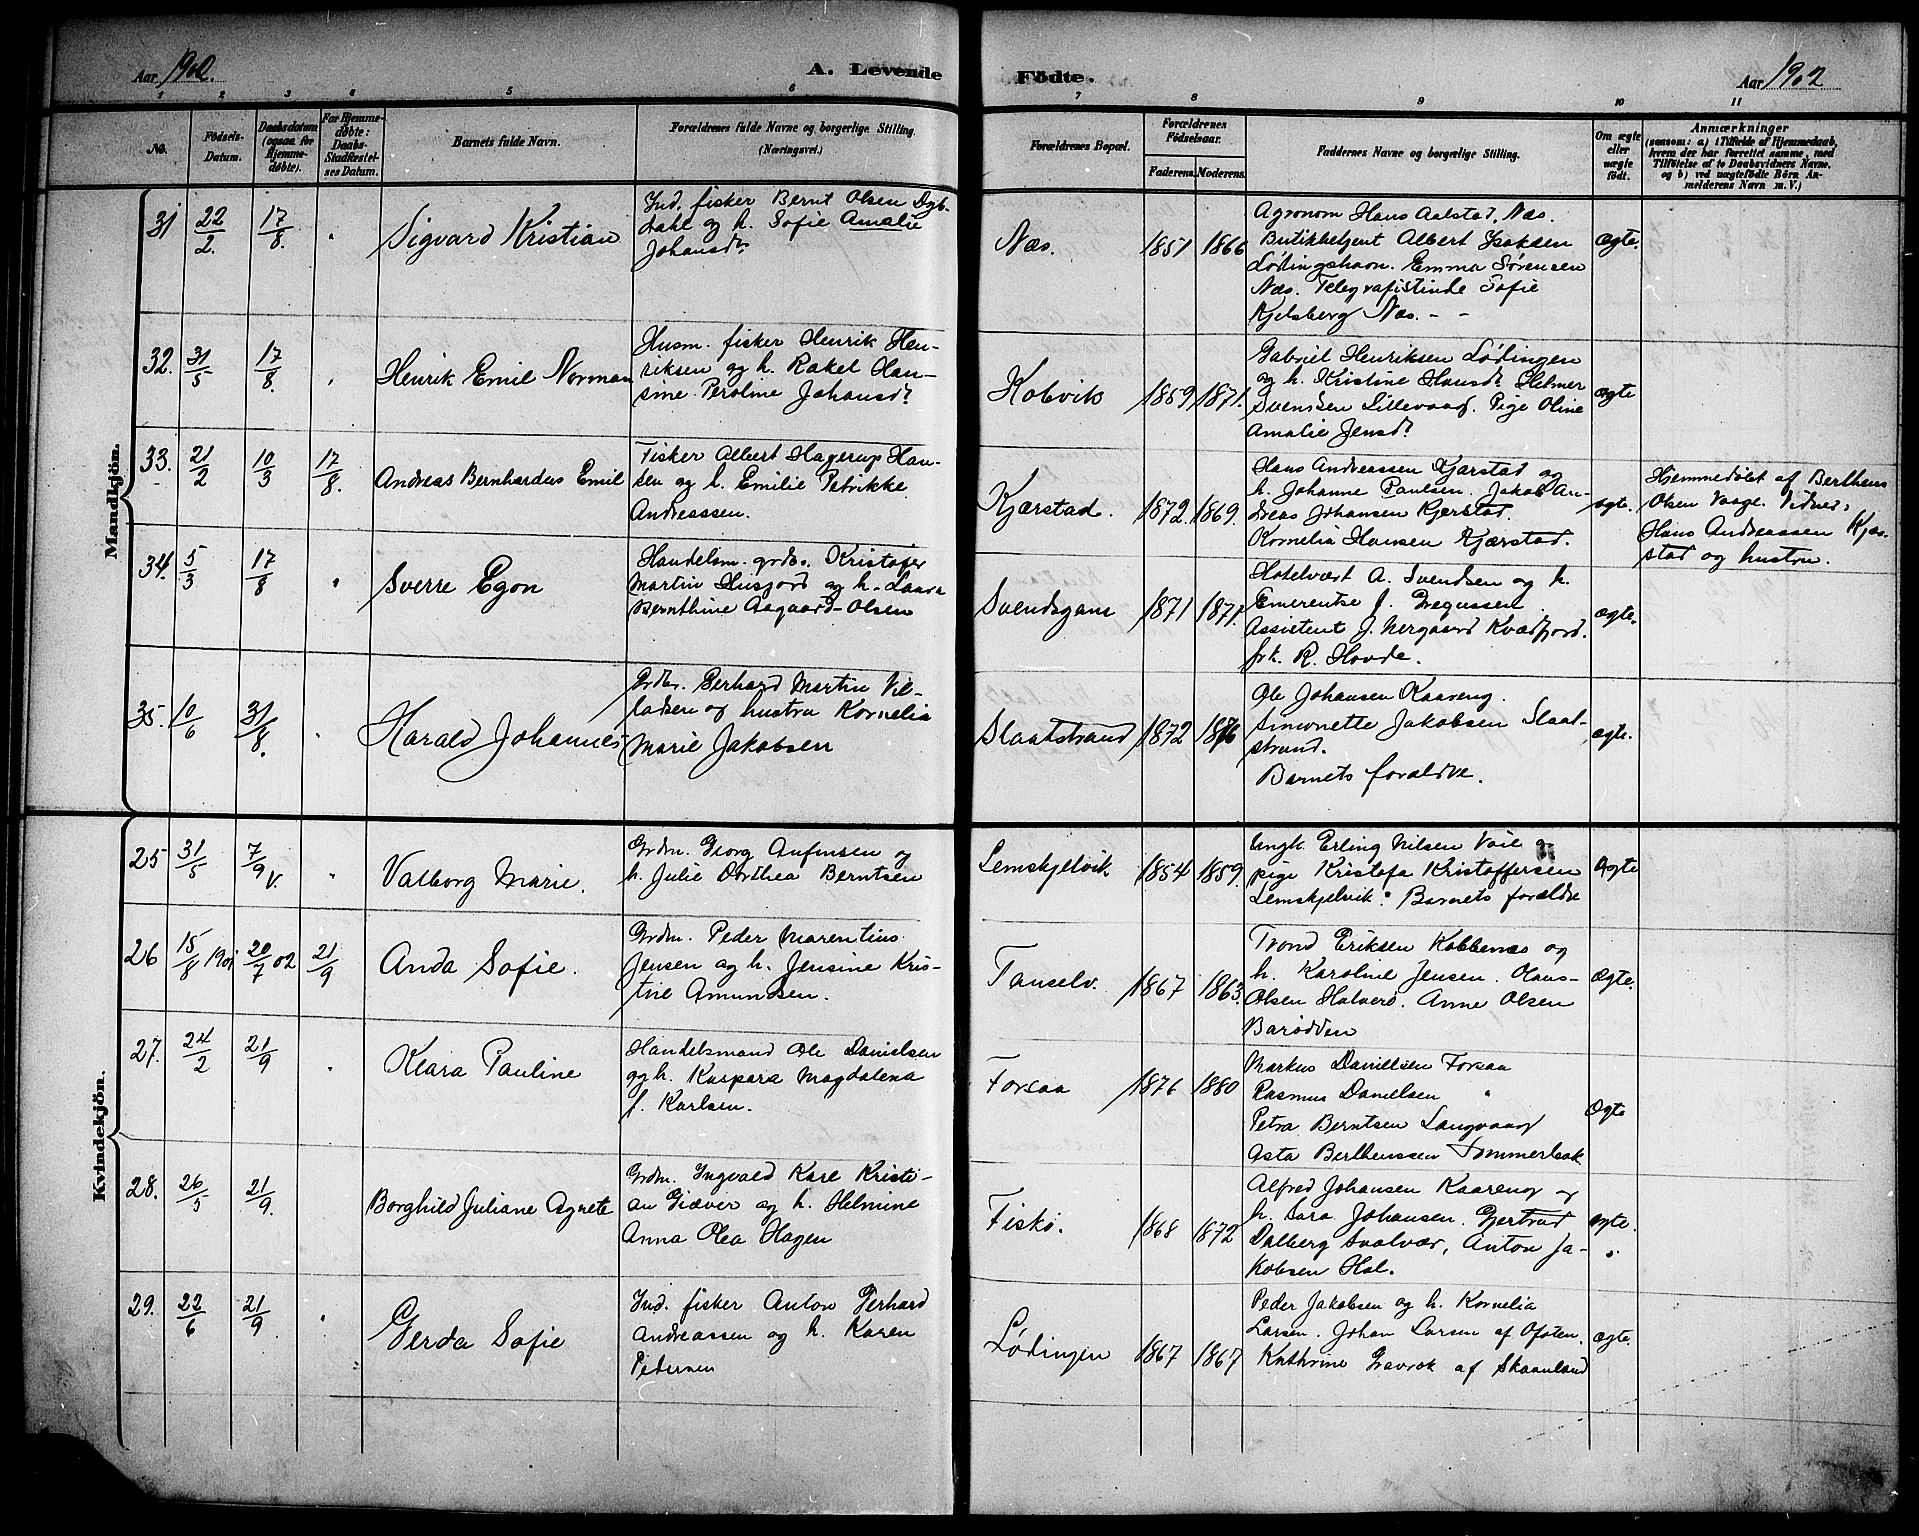 Aar 1902.
A. Levende
Födte.
Aar 1902
1 2 3 4 5 6 7 8 9 10 11
No.
Födsels-
Datum.
Daabsdatum
(ogsaa for
Hjemme-
døbte).
For Hjemme-
døbte:
Daabs-
Stadfæstel-
ses Datum.
Barnets fulde Navn.
Forældrenes fulde Navne og borgerlige Stilling.
(Næringsvei.)
Forældrenes Bopæl.
Forældrenes
Födselsaar.
Faderens. Moderens.
Faddernes Navne og borgerlige Stilling.
Om ægte
eller
uægte
født.
Anmærkninger
(saasom: a) i Tilfælde af Hjemmedaab,
hvem der har forrettet samme, med
Tilföielse af to Daabsvidners Navne,
og b) ved uægtefödte Börn An-
melderens Navn m. V.)
Mandkjön.
31 22/2. 17/8. " Sigvard Kristian
Ind. fisker Bernt Olsen Dyb-
dahl og h. Sofie Amalie
Johansdr
Næs. 1851 1866
Agronom Hans Aalstad, Næs.
Butikbetjent Albert Isaksen
Lødingshavn. Emma Sørensen
Næs. Telegrafistinde Sofie
Kjelsberg Næs. - -
ægte.
32. 31/5 17/8. " Henrik Emil Norman
Husm. fisker Henrik Hen-
riksen og h. Rakel Han-
sine Peroline Johansdr
Kobvik 1869 1871.
Gabriel Henriksen Lødingen
og h. Kristine Hansdr Helmer
Svensen Lillevaag. Pige Oline
Amalie Jensdr
ægte
33. 21/2 10/3 17/8. Andreas Bernhardus Emil
Fisker Albert Hagerup Han-
sen og h. Emilie Petrikke
Andreassen.
Kjærstad. 1872. 1869.
Hans Andreassen Kjærstad og
h. Johanne Paulsen. Jakob An-
dreas Johansen Kjerstad.
Kornelia Hansen Kjærstad.
ægte.
Hjemmedøbt af Bertheus
Olsen Vaage. Vidner:
Hans Andreassen Kjær-
stad og hustru.
34. 5/3 17/8 " Sverre Egon
Handelsm. grdbr. Kristofer
Martin Husjord og h. Laura
Bernthine Aagaard-Olsen
Svendsgam 1871 1871.
Hotelvært A. Svendsen og h.
Emerentse f. Gregussen.
Assistent J. Nergaard Kvædfjord.
frk. R. Hovde.
ægte.
35. 10/6 31/8. " Harald Johannes
Grdbr. Gerhard Martin Vil-
ladsen og hustru Kornelia
Marie Jakobsen
Slaatstrand 1872 1876
Ole Johansen Kaareng.
Simonette Jakobsen Slaat-
strand.
Barnets forældre.
ægte.
Kvindekjön.
25 31/5 7/9 V. " Valborg Marie.
Grdm. Georg Anfinsen og
h. Julie Dorthea Berntsen
Lemskjelvik 1854 1859.
Ungk. Erling Nilsen Voie og
pige Kristofa Kristoffersen
Lemskjelvik. Barnets forældre
Ægte
26 15/8 1901 20/7 02 21/9 Anda Sofie.
Grdm. Peder Marentius
Jensen og h. Jensine Kris-
tine Amundsen.
Tanselv. 1867 1863.
Trond Eriksen Kobbenes og
h. Karoline Jensen. Hans
Olsen Halverø. Anne Olsen
Barødden
Ægte.
27. 24/2 21/9 " Klara Pauline
Handelsmand Ole Danielsen
og h. Kaspara Magdalena
f. Karlsen.
Forsaa 1876 1880
Markus Danielsen Forsaa
Rasmus Danielsen "
Petra Berntsen Langvaag
Asta Bertheussen Sommerbak
Ægte
28. 26/5 21/9. Borghild Juliane Agnete
Grdm. Ingvald Kare Kristi-
an Giæver og h. Helmine
Anna Olea Hagen
Fiskø. 1868 1872
Alfred Johansen Kaareng og
h. Sara Johansen. Gjertrud
Dalberg Svolvær, Anton Ja-
kobsen Hol.
Ægte.
29. 22/6 21/9 " Gerda Sofie
Ind. fisker Anton Gerhard
Andreassen og h. Karen
Pedersen
Lødingen 1867 1867
Peder Jakobsen og h. Kornelia
Larsen. Johan Larsen af Ofoten.
Kathrine Gravrok af Skaanland
Ægte.